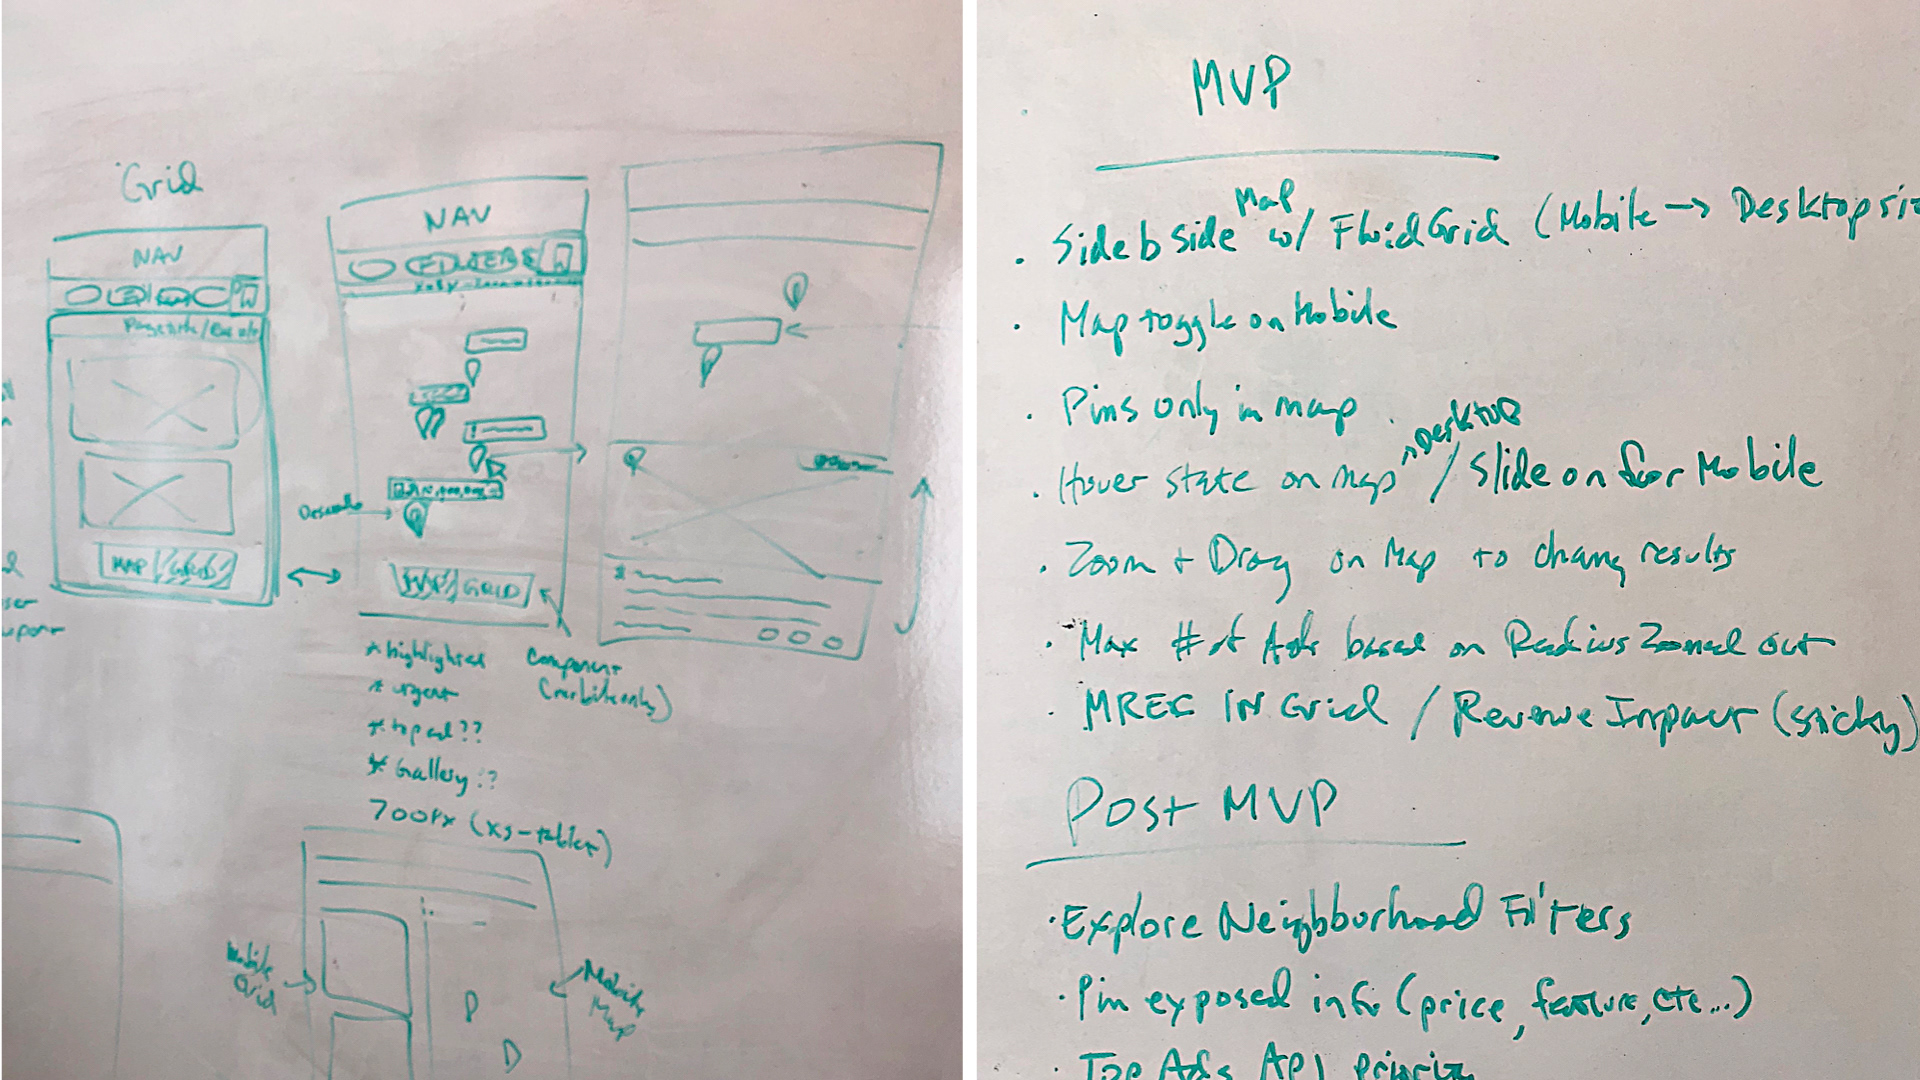 Grid
NAV
MAP
NAV
FILTERS
MAP GRID
* highlighted
* urgent
* top ad??
* Gallery ??
700px (xs-tablet)
Component
(mobile only)
Mobile
Grid
Mobile
Map
MVP
• Side b side Map w/ Fluid Grid (Mobile → Desktop
• Map toggle on Mobile
• Pins only in map
• Hover state on map ^Desktop / Slide on for Mobile
• Zoom + Drag on Map to change results
• Max # of Ads based on Radius Zoomed out
• MREC IN Grid / Revenue Impact (sticky)
Post MVP
• Explore Neighborhood Filters
• Pin exposed info (price, feature, etc...)
• Top Ads API priority